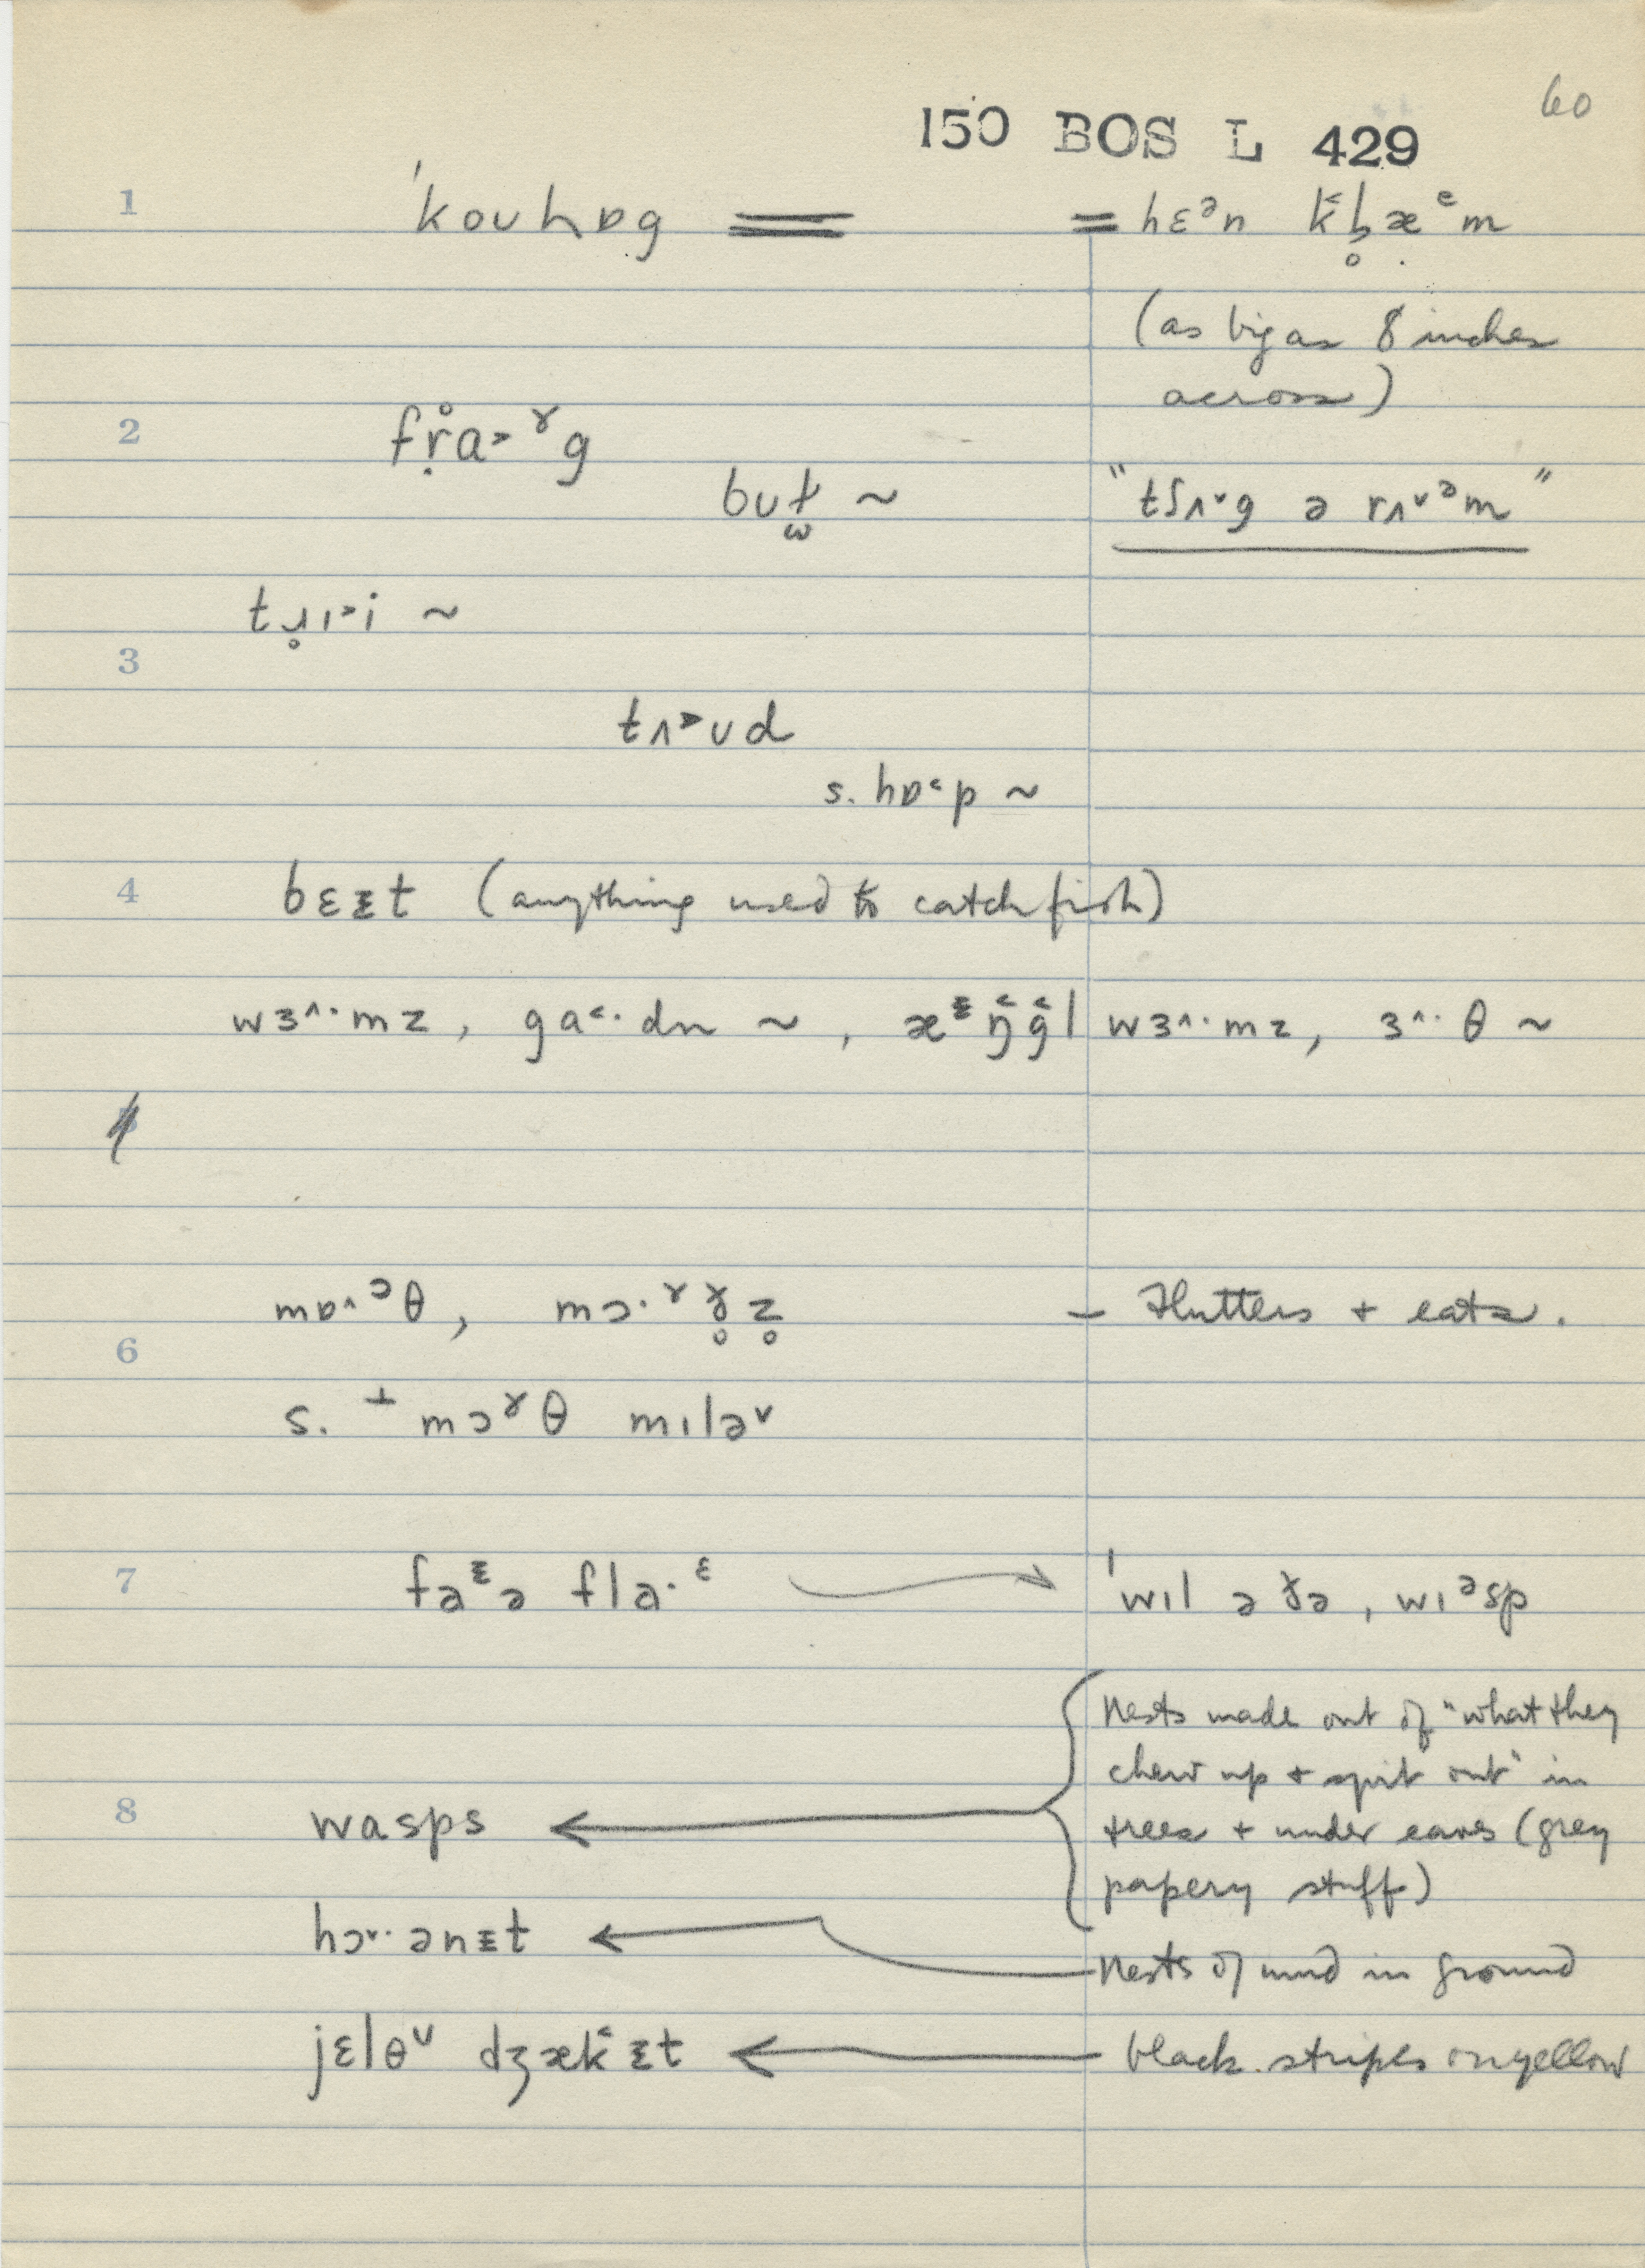 60
150 BOS L 429
1 ˈkoʊhɒg = = hɛᵊn k̆l̥æᵋm
(as big as 8 inches
across)
2 fr̥̊a˃ˠg
bʊɫ ~ "tʃʌ˅g ə rʌ˅ᵊm"
tɹ̥ɪ˃i ~
3
tʌ˃ʊd
s. hɒ˂p ~
4 bɛᵻt (anything used to catch fish)
wɜ˄·mz, ga˂·dn ~, æᵻŋ̆ğl wɜ˄·mz, ɜ˄·θ ~
mɒ˄ᵓθ, mɔ·ˠɤ̥z̥ – Flutters + eats.
6
s. + mɔˠθ mɪlə˅
7 faᵻə fla·ᵋ ˈwɪl ə ɤə, wɪᵊsp
Nests made out of "what they
chew up + spit out" in
8 wasps trees + under eaves (grey
papery stuff)
hɔ˅·ənᵻt
Nests of mud in ground
jɛlɵᶷ dʒæk̆ᵻt black stripes on yellow